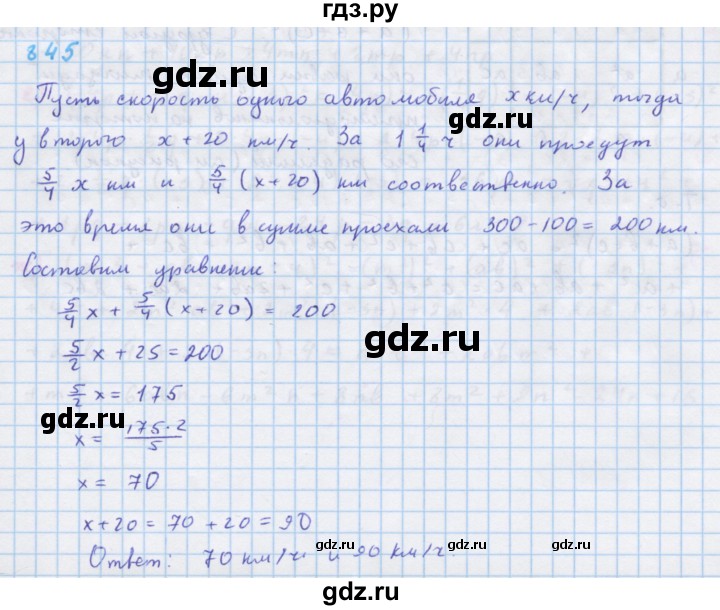 гдз.ру
845
Пусть скорость одного автомобиля x км/ч, тогда
у второго x + 20 км/ч. За 1 1/4 ч они проедут
5/4 x км и 5/4 (x+20) км соотвественно. За
это время они в сумме проехали 300 - 100 = 200 км.
Составим уравнение:
5/4 x + 5/4 (x+20) = 200
5/2 x + 25 = 200
5/2 x = 175
x = 175·2/5
x = 70
x+20 = 70 + 20 = 90
Ответ: 70 км/ч и 90 км/ч
gdz.ru
gdz.ru
gdz.ru
gdz.ru
gdz.ru
gdz.ru
gdz.ru
гдз.ру